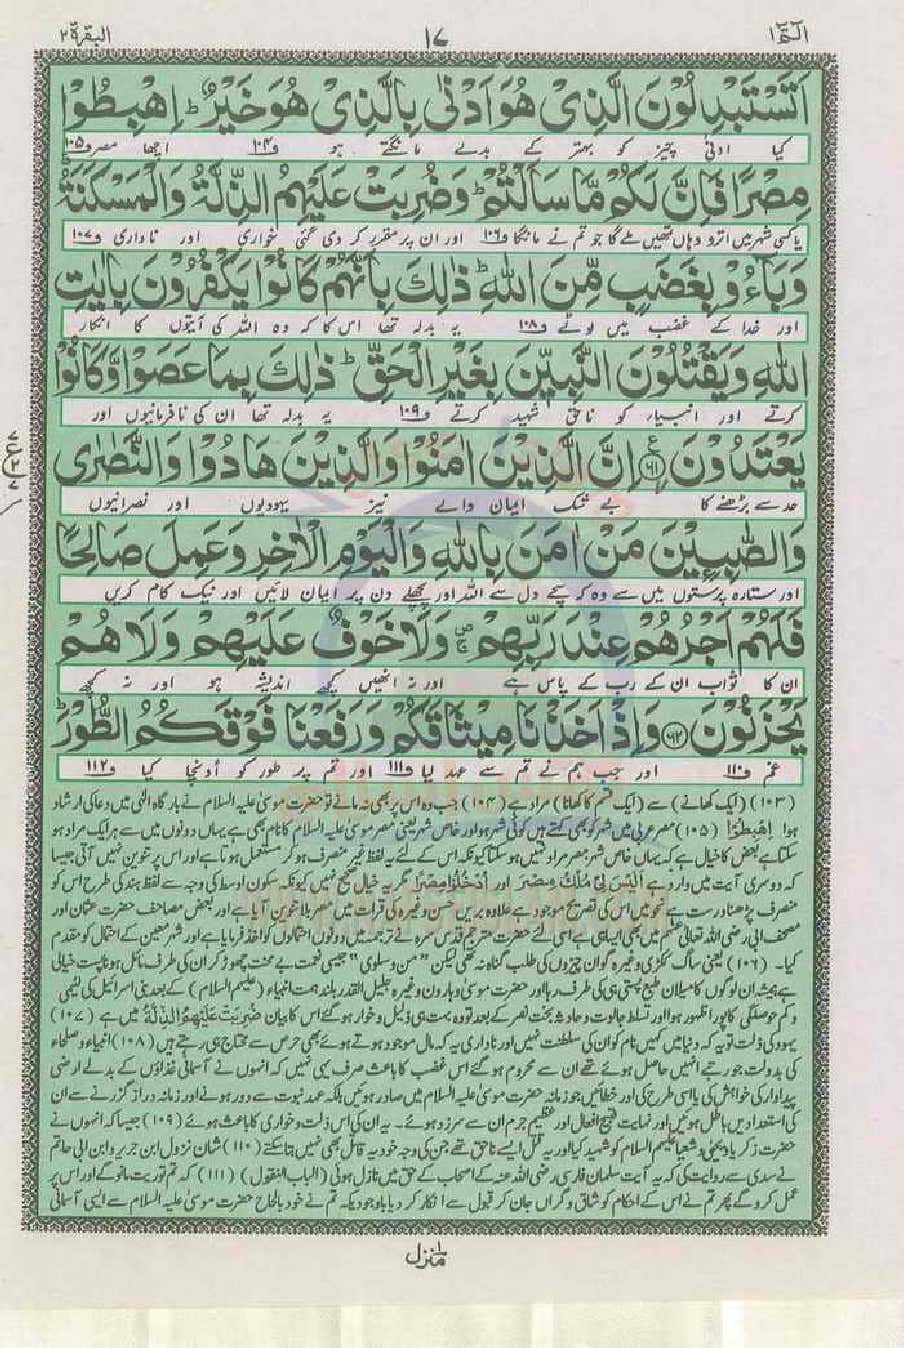 الٓمّٓ ١
١٧
البقرة ٢
اَتَسْتَبْدِلُوْنَ الَّذِیْ هُوَ اَدْنٰى بِالَّذِیْ هُوَ خَیْرٌؕ اِهْبِطُوْا
کیا ادنیٰ چیز کو بہتر کے بدلے مانگتے ہو ف۱۰۴ اچھا مصر ف۱۰۵
مِصْرًا فَاِنَّ لَكُمْ مَّا سَاَلْتُمْؕ وَ ضُرِبَتْ عَلَیْهِمُ الذِّلَّةُ وَ الْمَسْكَنَةُ
یا کسی شہر میں اترو وہاں تمہیں ملے گا جو تم نے مانگا ف۱۰۶ اور ان پر مقرر کر دی گئی خواری اور ناداری ف۱۰۷
وَ بَآءُوْ بِغَضَبٍ مِّنَ اللّٰهِؕ ذٰلِكَ بِاَنَّهُمْ كَانُوْا یَكْفُرُوْنَ بِاٰیٰتِ
اور خدا کے غضب میں لوٹے ف۱۰۸ یہ بدلہ تھا اس کا کہ وہ اللہ کی آیتوں کا انکار
اللّٰهِ وَ یَقْتُلُوْنَ النَّبِیّٖنَ بِغَیْرِ الْحَقِّؕ ذٰلِكَ بِمَا عَصَوْا وَّ كَانُوْا
کرتے اور انبیاء کو ناحق شہید کرتے ف۱۰۹ یہ بدلہ تھا ان کی نافرمانیوں اور
یَعْتَدُوْنَ ۶۱ اِنَّ الَّذِیْنَ اٰمَنُوْا وَ الَّذِیْنَ هَادُوْا وَ النَّصٰرٰى
حد سے بڑھنے کا بے شک ایمان والے نیز یہودیوں اور نصرانیوں
وَ الصّٰبِـِٕیْنَ مَنْ اٰمَنَ بِاللّٰهِ وَ الْیَوْمِ الْاٰخِرِ وَ عَمِلَ صَالِحًا
اور ستارہ پرستوں میں سے وہ کہ سچے دل سے اللہ اور پچھلے دن پر ایمان لائیں اور نیک کام کریں
فَلَهُمْ اَجْرُهُمْ عِنْدَ رَبِّهِمْ وَ لَا خَوْفٌ عَلَیْهِمْ وَ لَا هُمْ
ان کا ثواب ان کے رب کے پاس ہے اور نہ انہیں کچھ اندیشہ ہو اور نہ کچھ
یَحْزَنُوْنَ ۶۲ وَ اِذْ اَخَذْنَا مِیْثَاقَكُمْ وَ رَفَعْنَا فَوْقَكُمُ الطُّوْرَؕ
غم ف۱۱۰ اور جب ہم نے تم سے عہد لیا ف۱۱۱ اور تم پر طور کو اونچا کیا ف۱۱۲
(۱۰۳) (ایک کھانے) سے (ایک قسم کا کھانا) مراد ہے (۱۰۴) جب وہ اس پر بھی نہ مانے تو حضرت موسیٰ علیہ السلام نے بارگاہ الٰہی میں دعا کی ارشاد
ہوا اِهْبِطُوْا (۱۰۵) مصر عربی میں شہر کو بھی کہتے ہیں کوئی شہر ہو اور خاص شہر یعنی مصر موسیٰ علیہ السلام کا نام بھی ہے یہاں دونوں میں سے ہر ایک مراد ہو
سکتا ہے بعض کا خیال ہے کہ یہاں خاص شہر مصر مراد نہیں ہو سکتا کیونکہ اس کے لئے یہ لفظ غیر منصرف ہو کر مستعمل ہوتا ہے اور اس پر تنوین نہیں آتی جیسا
کہ دوسری آیت میں وارد ہے اَلَیْسَ لِیْ مُلْكُ مِصْرَ اور اُدْخُلُوْا مِصْرَ مگر یہ خیال صحیح نہیں کیونکہ سکون اوسط کی وجہ سے لفظ ہند کی طرح اس کو
منصرف پڑھنا درست ہے نحو میں اس کی تصریح موجود ہے علاوہ بریں حسن وغیرہ کی قرات میں مصر بلا تنوین آیا ہے اور بعض مصاحف حضرت عثمان اور
مصحف ابی رضی اللہ تعالیٰ عنہم میں بھی ایسا ہی ہے اسی لئے حضرت مترجم قدس سرہ نے ترجمہ میں دونوں احتمالوں کو اخذ فرمایا ہے اور شہر معین کے احتمال کو مقدم
کیا۔ (۱۰۶) یعنی ساگ ککڑی وغیرہ گو ان چیزوں کی طلب گناہ نہ تھی لیکن "من و سلویٰ" جیسی نعمت بے محنت چھوڑ کر ان کی طرف مائل ہونا پست خیالی
ہے ہمیشہ ان لوگوں کا میلان طبع پستی ہی کی طرف رہا اور حضرت موسیٰ و ہارون وغیرہ جلیل القدر بلند ہمت انبیاء (علیہم السلام) کے بعد بنی اسرائیل کی لئیمی
و کم حوصلگی کا پورا ظہور ہوا اور تسلط جالوت و حادثہ بخت نصر کے بعد تو وہ بہت ہی ذلیل و خوار ہو گئے اس کا بیان ضُرِبَتْ عَلَیْهِمُ الذِّلَّةُ میں ہے (۱۰۷)
یہود کی ذلت تو یہ کہ دنیا میں کہیں نام کو ان کی سلطنت نہیں اور ناداری یہ کہ مال موجود ہوتے ہوئے بھی حرص سے محتاج ہی رہتے ہیں (۱۰۸) انبیاء و صلحاء
کی بدولت جو رتبے انہیں حاصل ہوئے تھے ان سے محروم ہو گئے اس غضب کا باعث صرف یہی نہیں کہ انہوں نے آسمانی غذاؤں کے بدلے ارضی
پیداوار کی خواہش کی یا اسی طرح کی اور خطائیں جو زمانہ حضرت موسیٰ علیہ السلام میں صادر ہوئیں بلکہ عہد نبوت سے دور ہونے اور زمانہ دراز گزرنے سے ان
کی استعدادیں باطل ہوئیں اور نہایت قبیح افعال اور عظیم جرم ان سے سرزد ہوئے۔ یہ ان کی اس ذلت و خواری کا باعث ہوئے (۱۰۹) جیسا کہ انہوں نے
حضرت زکریا و یحییٰ و شعیا علیہم السلام کو شہید کیا اور یہ قتل ایسے ناحق تھے جن کی وجہ خود یہ قاتل بھی نہیں بتا سکتے (۱۱۰) شان نزول ابن جریر و ابن ابی حاتم
نے سدی سے روایت کی کہ یہ آیت سلمان فارسی رضی اللہ عنہ کے اصحاب کے حق میں نازل ہوئی (الباب النقول) (۱۱۱) کہ تم توریت مانو گے اور اس پر
عمل کرو گے پھر تم نے اس کے احکام کو شاق و گراں جان کر قبول سے انکار کر دیا باوجودیکہ تم نے خود بالحاح حضرت موسیٰ علیہ السلام سے ایسی آسمانی
منزل ۱